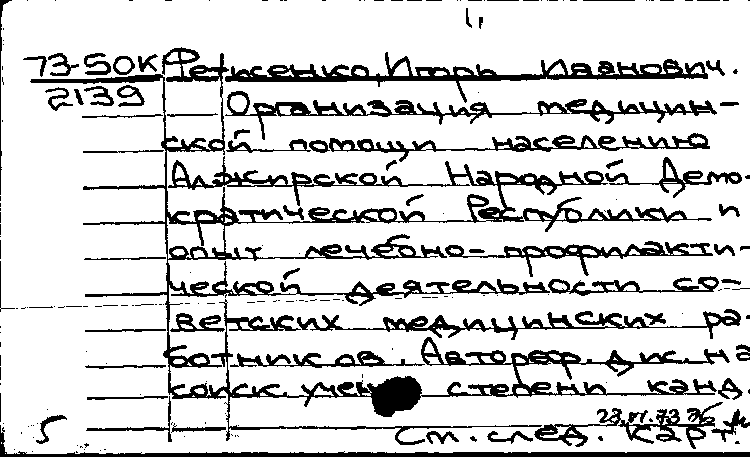 1,
73-50К Фетисенко, Игорь Иванович.
2139 Организация медицин-
ской помощи населению
Алжирской Народной Демо-
кратической Республики и
опыт лечебно-профилакти-
ческой деятельности со-
ветских медицинских ра-
ботников. Автореф. дис. на
соиск. учен степени канд.
5 См. след. карт.